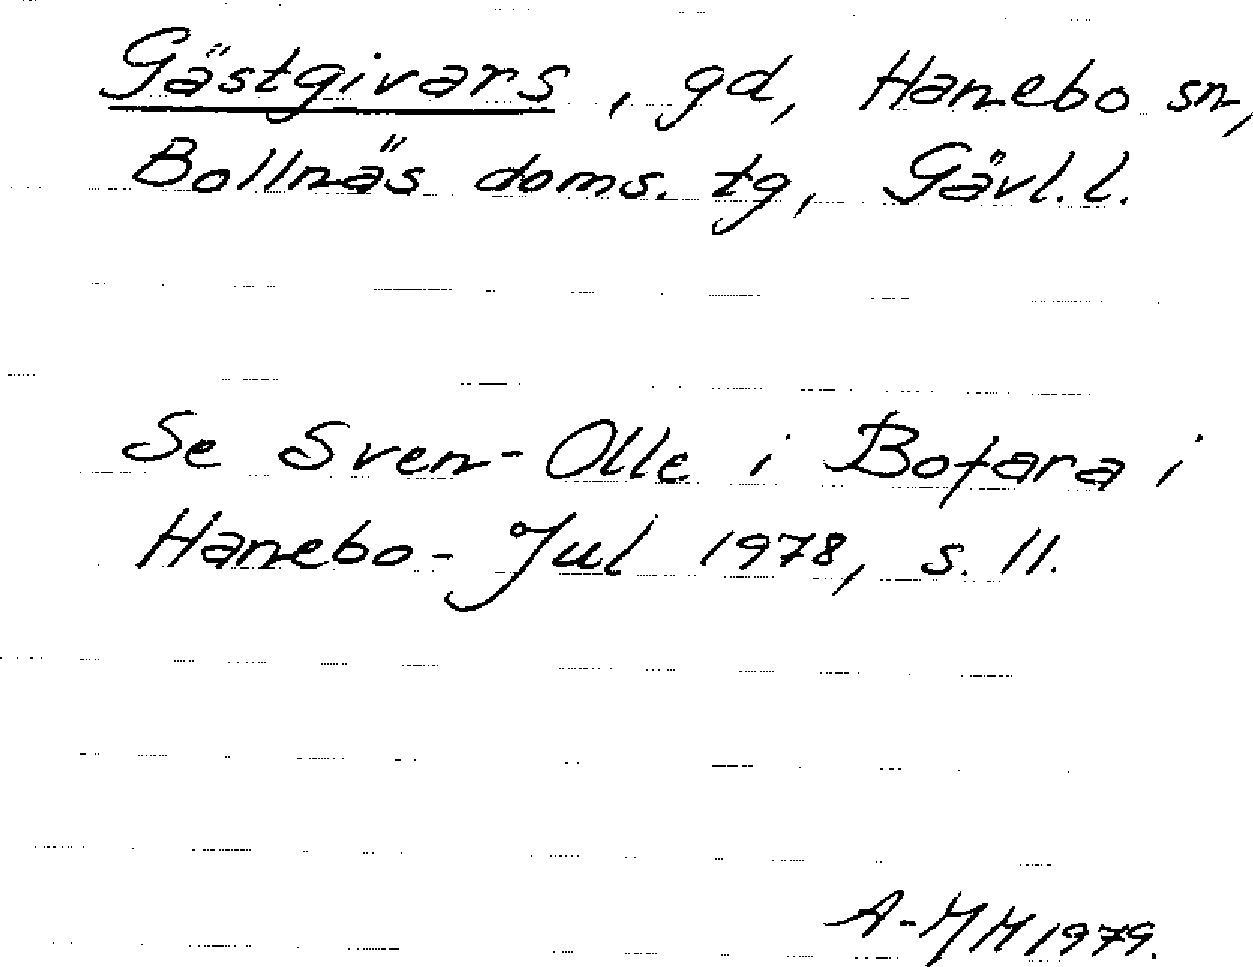 Gästgivars, gd, Hanebo sn,
Bollnäs doms. tg, Gävl. l.
Se Sven-Olle i Bofara i
Hanebo-Jul 1978, s. 11.
A-MH 1979.